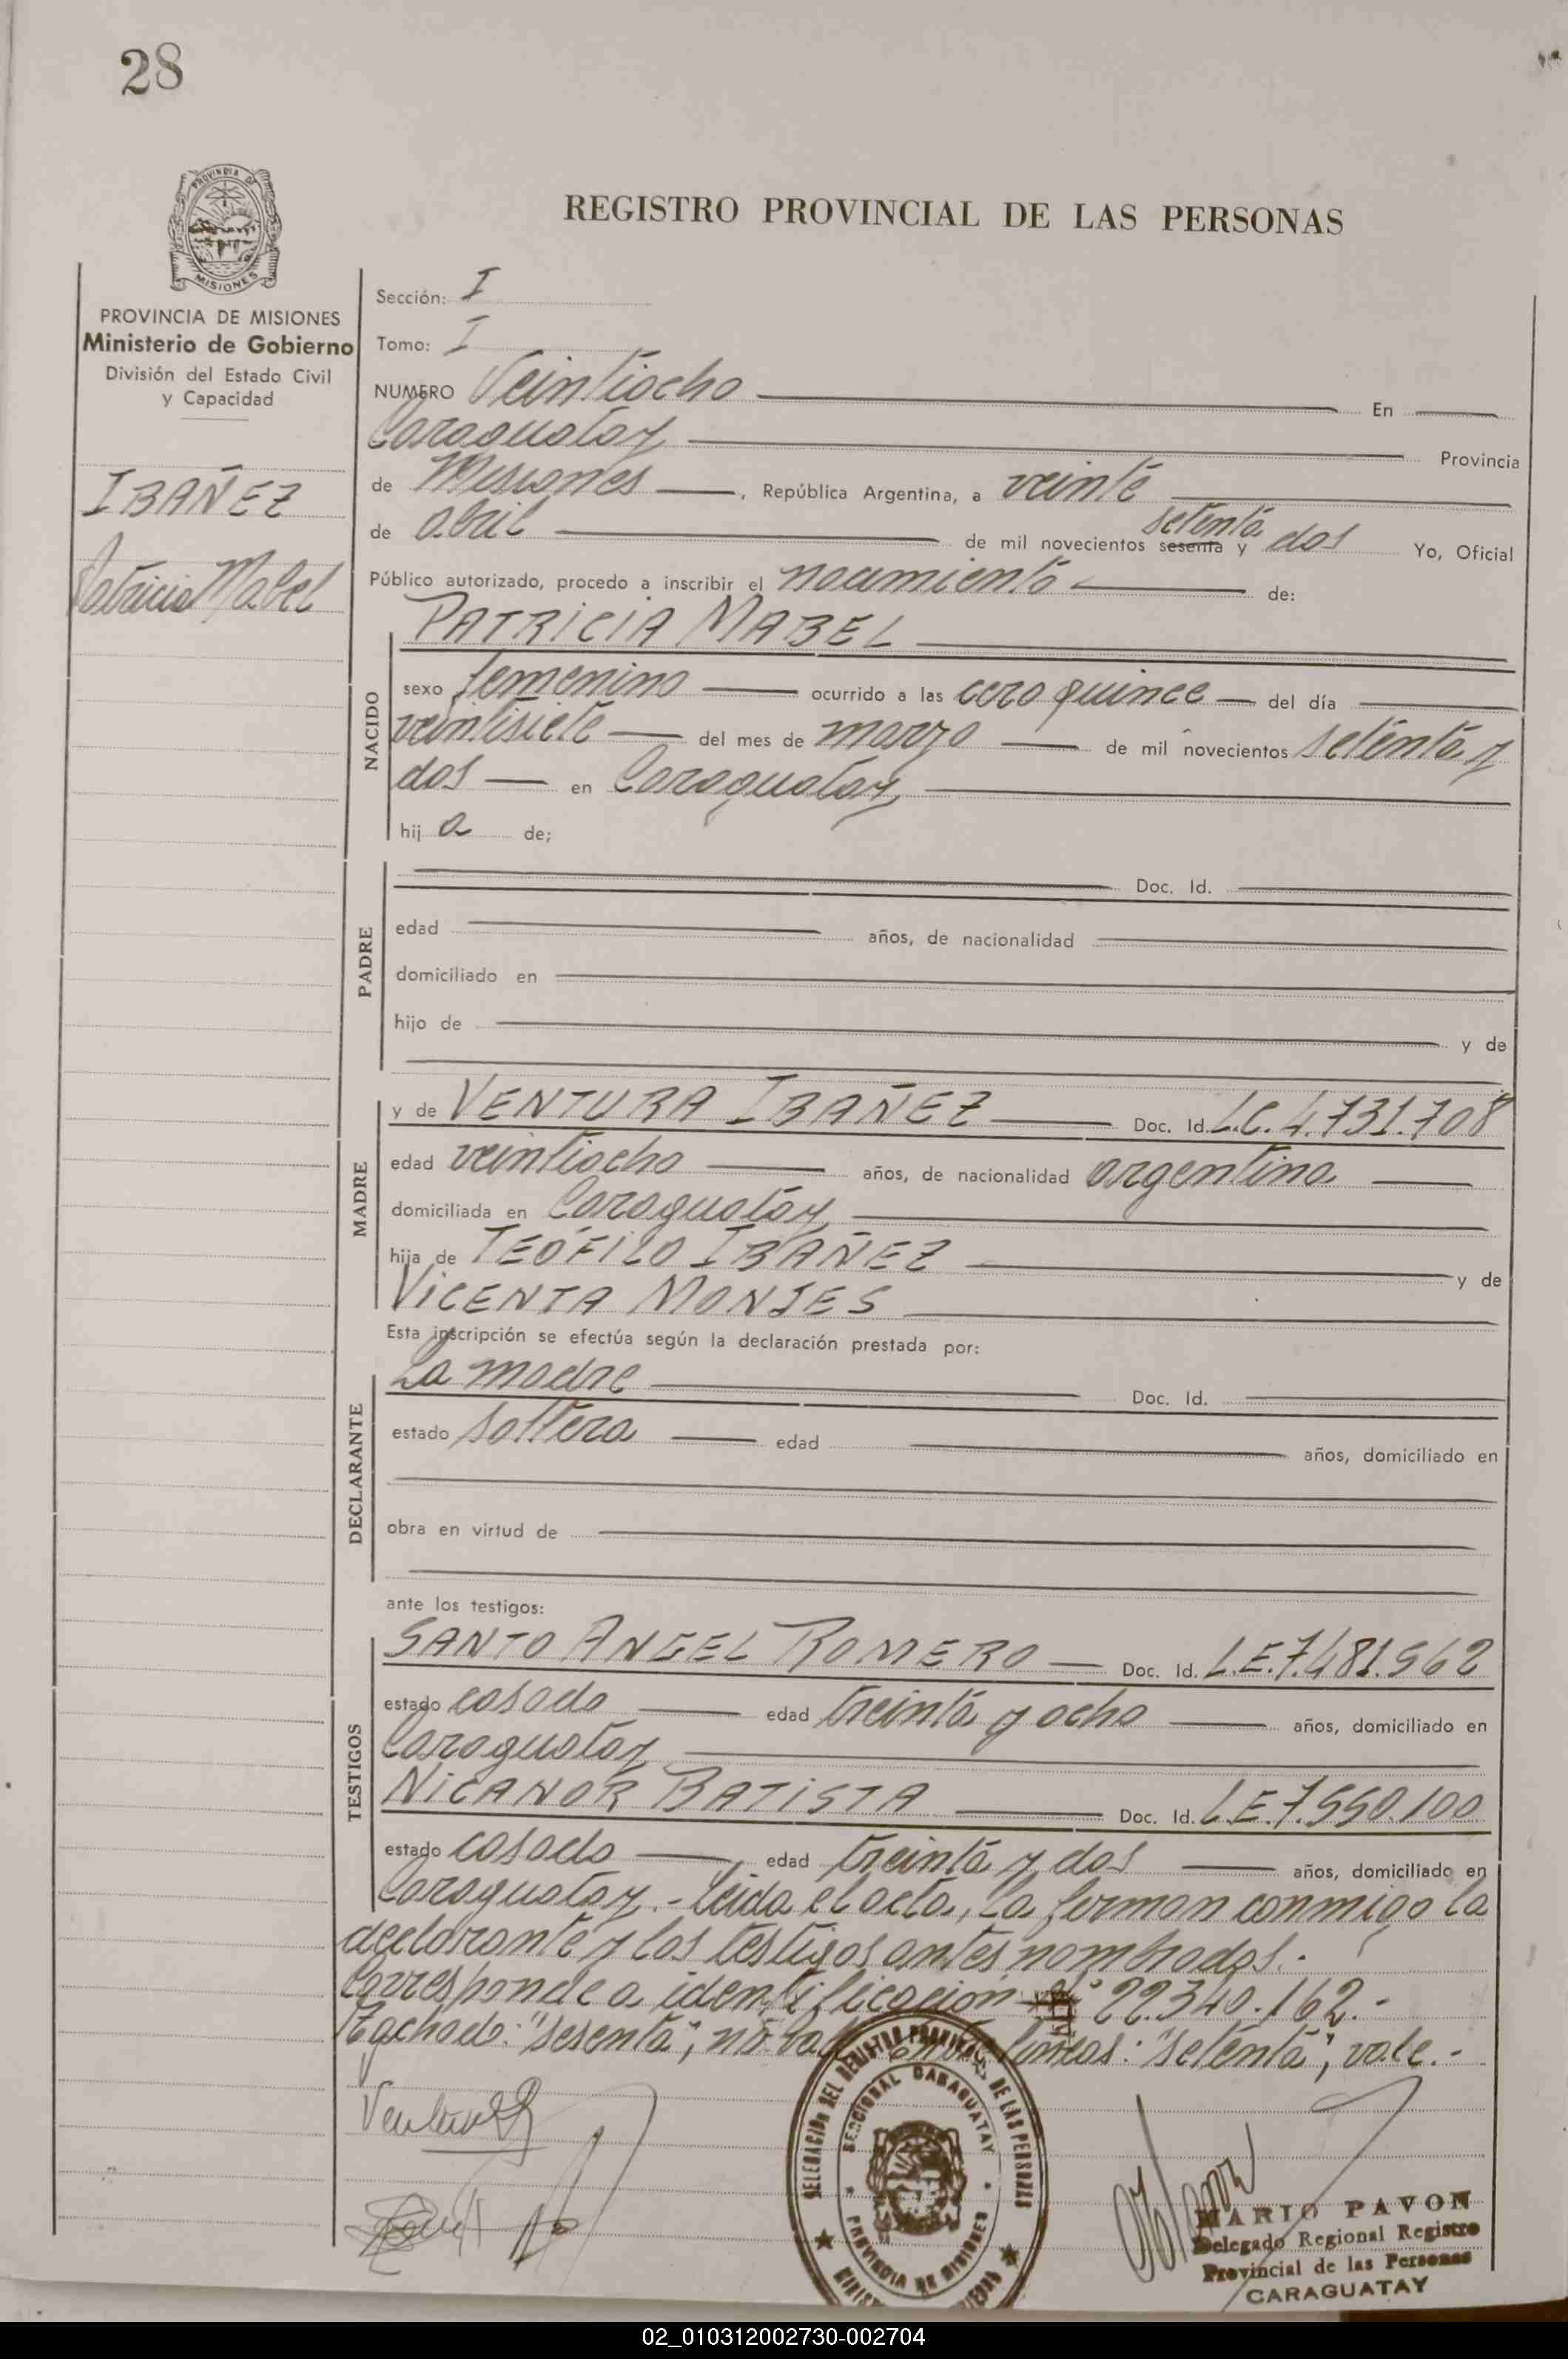 28
PROVINCIA DE
MISIONES
REGISTRO PROVINCIAL DE LAS PERSONAS
PROVINCIA DE MISIONES
Ministerio de Gobierno
División del Estado Civil
y Capacidad
IBAÑEZ
Patricia Mabel
Sección: I
Tomo: I
NUMERO Veintiocho En
Caraguatay Provincia
de Misiones, República Argentina, a veinte
setenta
de abril de mil novecientos sesenta y dos Yo, Oficial
Público autorizado, procedo a inscribir el nacimiento de:
PATRICIA MABEL
NACIDO
sexo femenino ocurrido a las cero quince del día
veintisiete del mes de marzo de mil novecientos setenta y
dos en Caraguatay
hij a de;
PADRE
Doc. Id.
edad años, de nacionalidad
domiciliado en
hijo de y de
MADRE
y de VENTURA IBAÑEZ Doc. Id. L.C. 4.731.708
edad veintiocho años, de nacionalidad argentina
domiciliada en Caraguatay
hija de TEÓFILO IBAÑEZ y de
VICENTA MONJES
Esta inscripción se efectúa según la declaración prestada por:
DECLARANTE
La madre Doc. Id.
estado soltera edad años, domiciliado en
obra en virtud de
ante los testigos:
TESTIGOS
SANTO ANGEL ROMERO Doc. Id. L.E. 7.481.562
estado casado edad treinta y ocho años, domiciliado en
Caraguatay
NICANOR BATISTA Doc. Id. L.E. 7.550.100
estado casado, edad treinta y dos años, domiciliado en
Caraguatay.- Leida el acta, la forman conmigo la
declarante y los testigos antes nombrados.-
Corresponde a identificación 22.340.162.-
Tachado: "sesenta", no vale entre lineas: "setenta", vale.-
DELEGACION DEL REGISTRO PROVINCIAL DE LAS PERSONAS
SECCIONAL CARAGUATAY
PROVINCIA DE MISIONES
MARIO PAVON
Delegado Regional Registro
Provincial de las Personas
CARAGUATAY
02_010312002730-002704